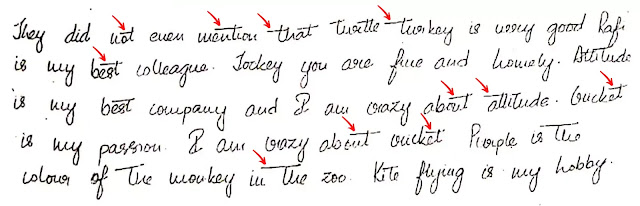 They did not even mention that turtle turkey is very good Rafi
is my best colleague. Jockey you are fine and homely. Attitude
is my best company and I am crazy about attitude. Cricket
is my passion. I am crazy about cricket Purple is the
colour of The monkey in The zoo. Kite flying is my hobby.